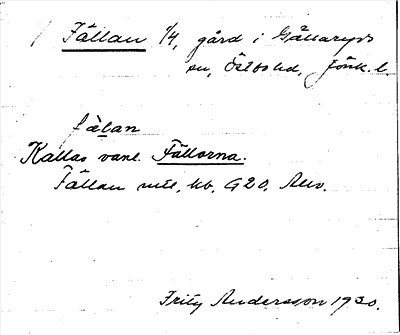 Fällan 1/4, gård i Gällaryds
sn, Östbo hd, Jönk. l.
fälan
Kallas vanl. Fällorna.
Fällan mtl, kb. G20. Anv.
Fritz Andersson 1930.